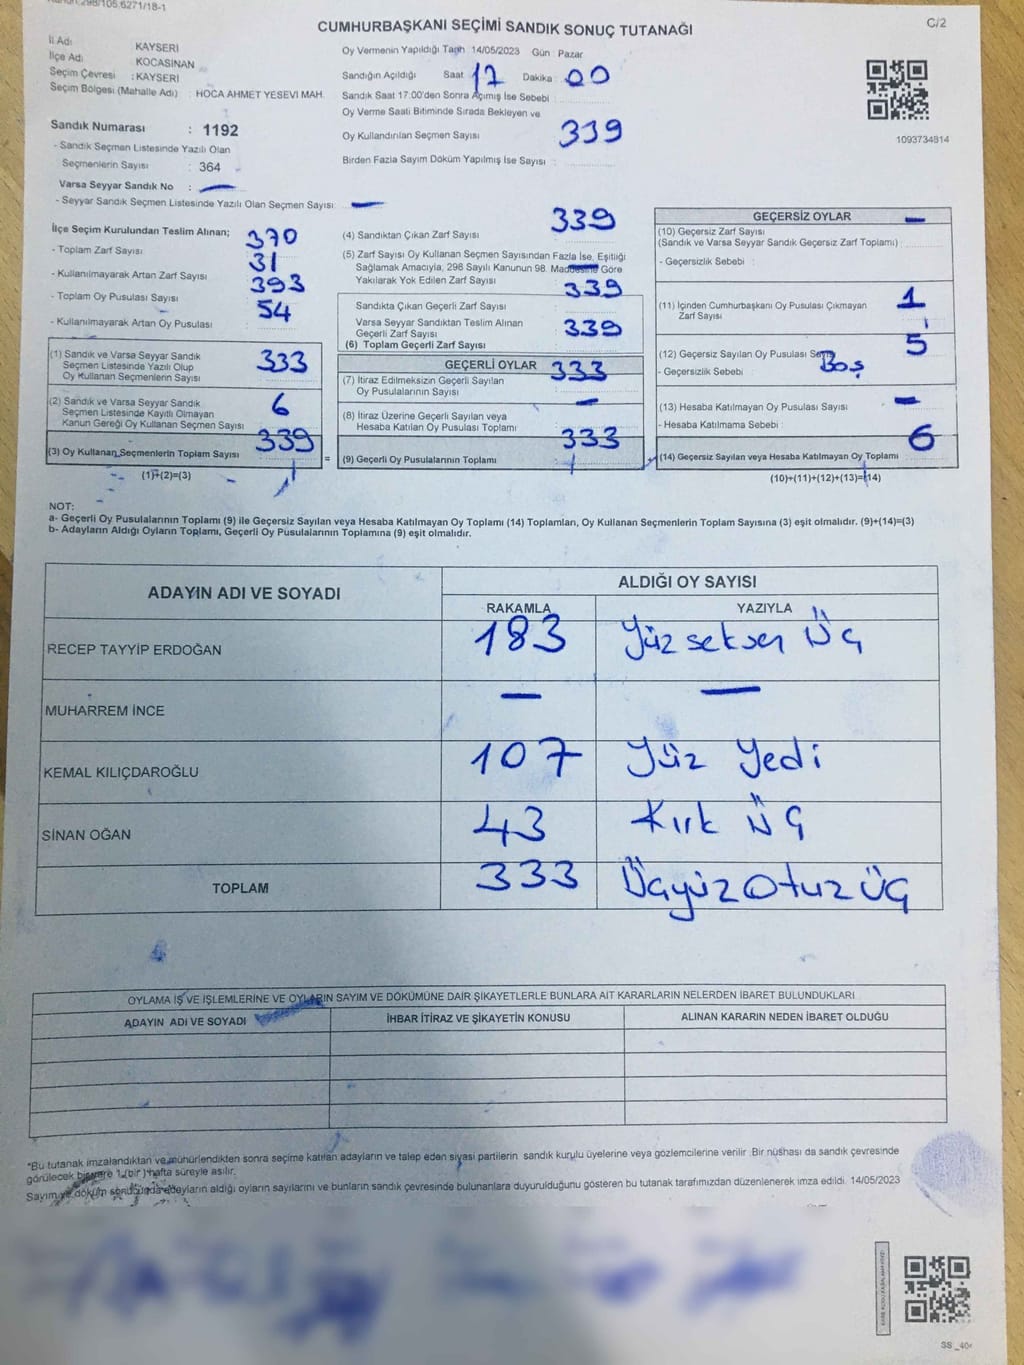 Kanun:298/105.6271/18-1
C/2
CUMHURBAŞKANI SEÇİMİ SANDIK SONUÇ TUTANAĞI
İl Adı KAYSERİ
İlçe Adı KOCASİNAN
Seçim Çevresi : KAYSERİ
Seçim Bölgesi (Mahalle Adı) : HOCA AHMET YESEVİ MAH.
Sandık Numarası : 1192
- Sandık Seçmen Listesinde Yazılı Olan
Seçmenlerin Sayısı : 364
Varsa Seyyar Sandık No : —
- Seyyar Sandık Seçmen Listesinde Yazılı Olan Seçmen Sayısı: —
Oy Vermenin Yapıldığı Tarih 14/05/2023 Gün : Pazar
Sandığın Açıldığı Saat 17 Dakika : 00
Sandık Saat 17:00'den Sonra Açılmış İse Sebebi :
Oy Verme Saati Bitiminde Sırada Bekleyen ve
Oy Kullandırılan Seçmen Sayısı : 339
Birden Fazla Sayım Döküm Yapılmış İse Sayısı :
1093734814
İlçe Seçim Kurulundan Teslim Alınan;
- Toplam Zarf Sayısı : 370
- Kullanılmayarak Artan Zarf Sayısı : 31
- Toplam Oy Pusulası Sayısı : 393
- Kullanılmayarak Artan Oy Pusulası : 54
(1) Sandık ve Varsa Seyyar Sandık
Seçmen Listesinde Yazılı Olup
Oy Kullanan Seçmenlerin Sayısı : 333
(2) Sandık ve Varsa Seyyar Sandık
Seçmen Listesinde Kayıtlı Olmayan
Kanun Gereği Oy Kullanan Seçmen Sayısı : 6
(3) Oy Kullanan Seçmenlerin Toplam Sayısı : 339
(1)+(2)=(3)
(4) Sandıktan Çıkan Zarf Sayısı : 339
(5) Zarf Sayısı Oy Kullanan Seçmen Sayısından Fazla İse, Eşitliği
Sağlamak Amacıyla, 298 Sayılı Kanunun 98. Maddesine Göre
Yakılarak Yok Edilen Zarf Sayısı : —
Sandıkta Çıkan Geçerli Zarf Sayısı : 339
Varsa Seyyar Sandıktan Teslim Alınan
Geçerli Zarf Sayısı
(6) Toplam Geçerli Zarf Sayısı : 339
GEÇERLİ OYLAR
(7) İtiraz Edilmeksizin Geçerli Sayılan
Oy Pusulalarının Sayısı : 333
(8) İtiraz Üzerine Geçerli Sayılan veya
Hesaba Katılan Oy Pusulası Toplamı : —
(9) Geçerli Oy Pusulalarının Toplamı : 333
GEÇERSİZ OYLAR
(10) Geçersiz Zarf Sayısı —
(Sandık ve Varsa Seyyar Sandık Geçersiz Zarf Toplamı) :
- Geçersizlik Sebebi :
(11) İçinden Cumhurbaşkanı Oy Pusulası Çıkmayan
Zarf Sayısı : 1
(12) Geçersiz Sayılan Oy Pusulası Sayısı 5
- Geçersizlik Sebebi : Boş
(13) Hesaba Katılmayan Oy Pusulası Sayısı : —
- Hesaba Katılmama Sebebi :
(14) Geçersiz Sayılan veya Hesaba Katılmayan Oy Toplamı : 6
(10)+(11)+(12)+(13)=(14)
NOT:
a- Geçerli Oy Pusulalarının Toplamı (9) ile Geçersiz Sayılan veya Hesaba Katılmayan Oy Toplamı (14) Toplamları, Oy Kullanan Seçmenlerin Toplam Sayısına (3) eşit olmalıdır. (9)+(14)=(3)
b- Adayların Aldığı Oyların Toplamı, Geçerli Oy Pusulalarının Toplamına (9) eşit olmalıdır.
ADAYIN ADI VE SOYADI ALDIĞI OY SAYISI
RAKAMLA YAZIYLA
RECEP TAYYİP ERDOĞAN 183 Yüz seksen Üç
MUHARREM İNCE — —
KEMAL KILIÇDAROĞLU 107 Yüz Yedi
SİNAN OĞAN 43 Kırk Üç
TOPLAM 333 Üçyüz Otuz Üç
OYLAMA İŞ VE İŞLEMLERİNE VE OYLARIN SAYIM VE DÖKÜMÜNE DAİR ŞİKAYETLERLE BUNLARA AİT KARARLARIN NELERDEN İBARET BULUNDUKLARI
ADAYIN ADI VE SOYADI İHBAR İTİRAZ VE ŞİKAYETİN KONUSU ALINAN KARARIN NEDEN İBARET OLDUĞU
*Bu tutanak imzalandıktan ve mühürlendikten sonra seçime katılan adayların ve talep eden siyasi partilerin sandık kurulu üyelerine veya gözlemcilerine verilir. Bir nüshası da sandık çevresinde
görülecek bir yere 1 (bir) hafta süreyle asılır.
Sayım ve döküm sonucunda adayların aldığı oyların sayılarını ve bunların sandık çevresinde bulunanlara duyurulduğunu gösteren bu tutanak tarafımızdan düzenlenerek imza edildi. 14/05/2023